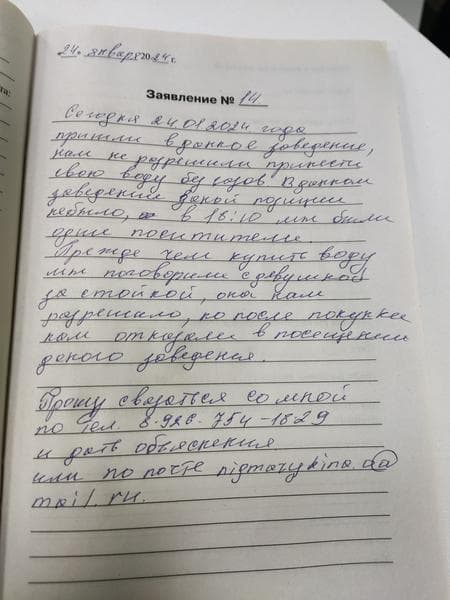 24. января 2024 г.
Заявление № 14
Сегодня 24.01.2024 года
пришли в данное заведение,
нам не разрешили принести
свою воду без газов. В данном
заведении даной позиции
небыло, в 18:10 мы были
одни посетители.
Прежде чем купить воду
мы поговорили с девушкой
за стойкой, она нам
разрешило, но после покупки
нам отказали в посещении
даного заведения.
Прошу связаться со мной
по тел. 8-926-754-18-29
и дать объяснения
или по почте
mail.ru.